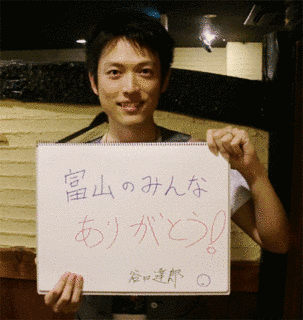 富山のみんな
ありがとう!
谷口達郎